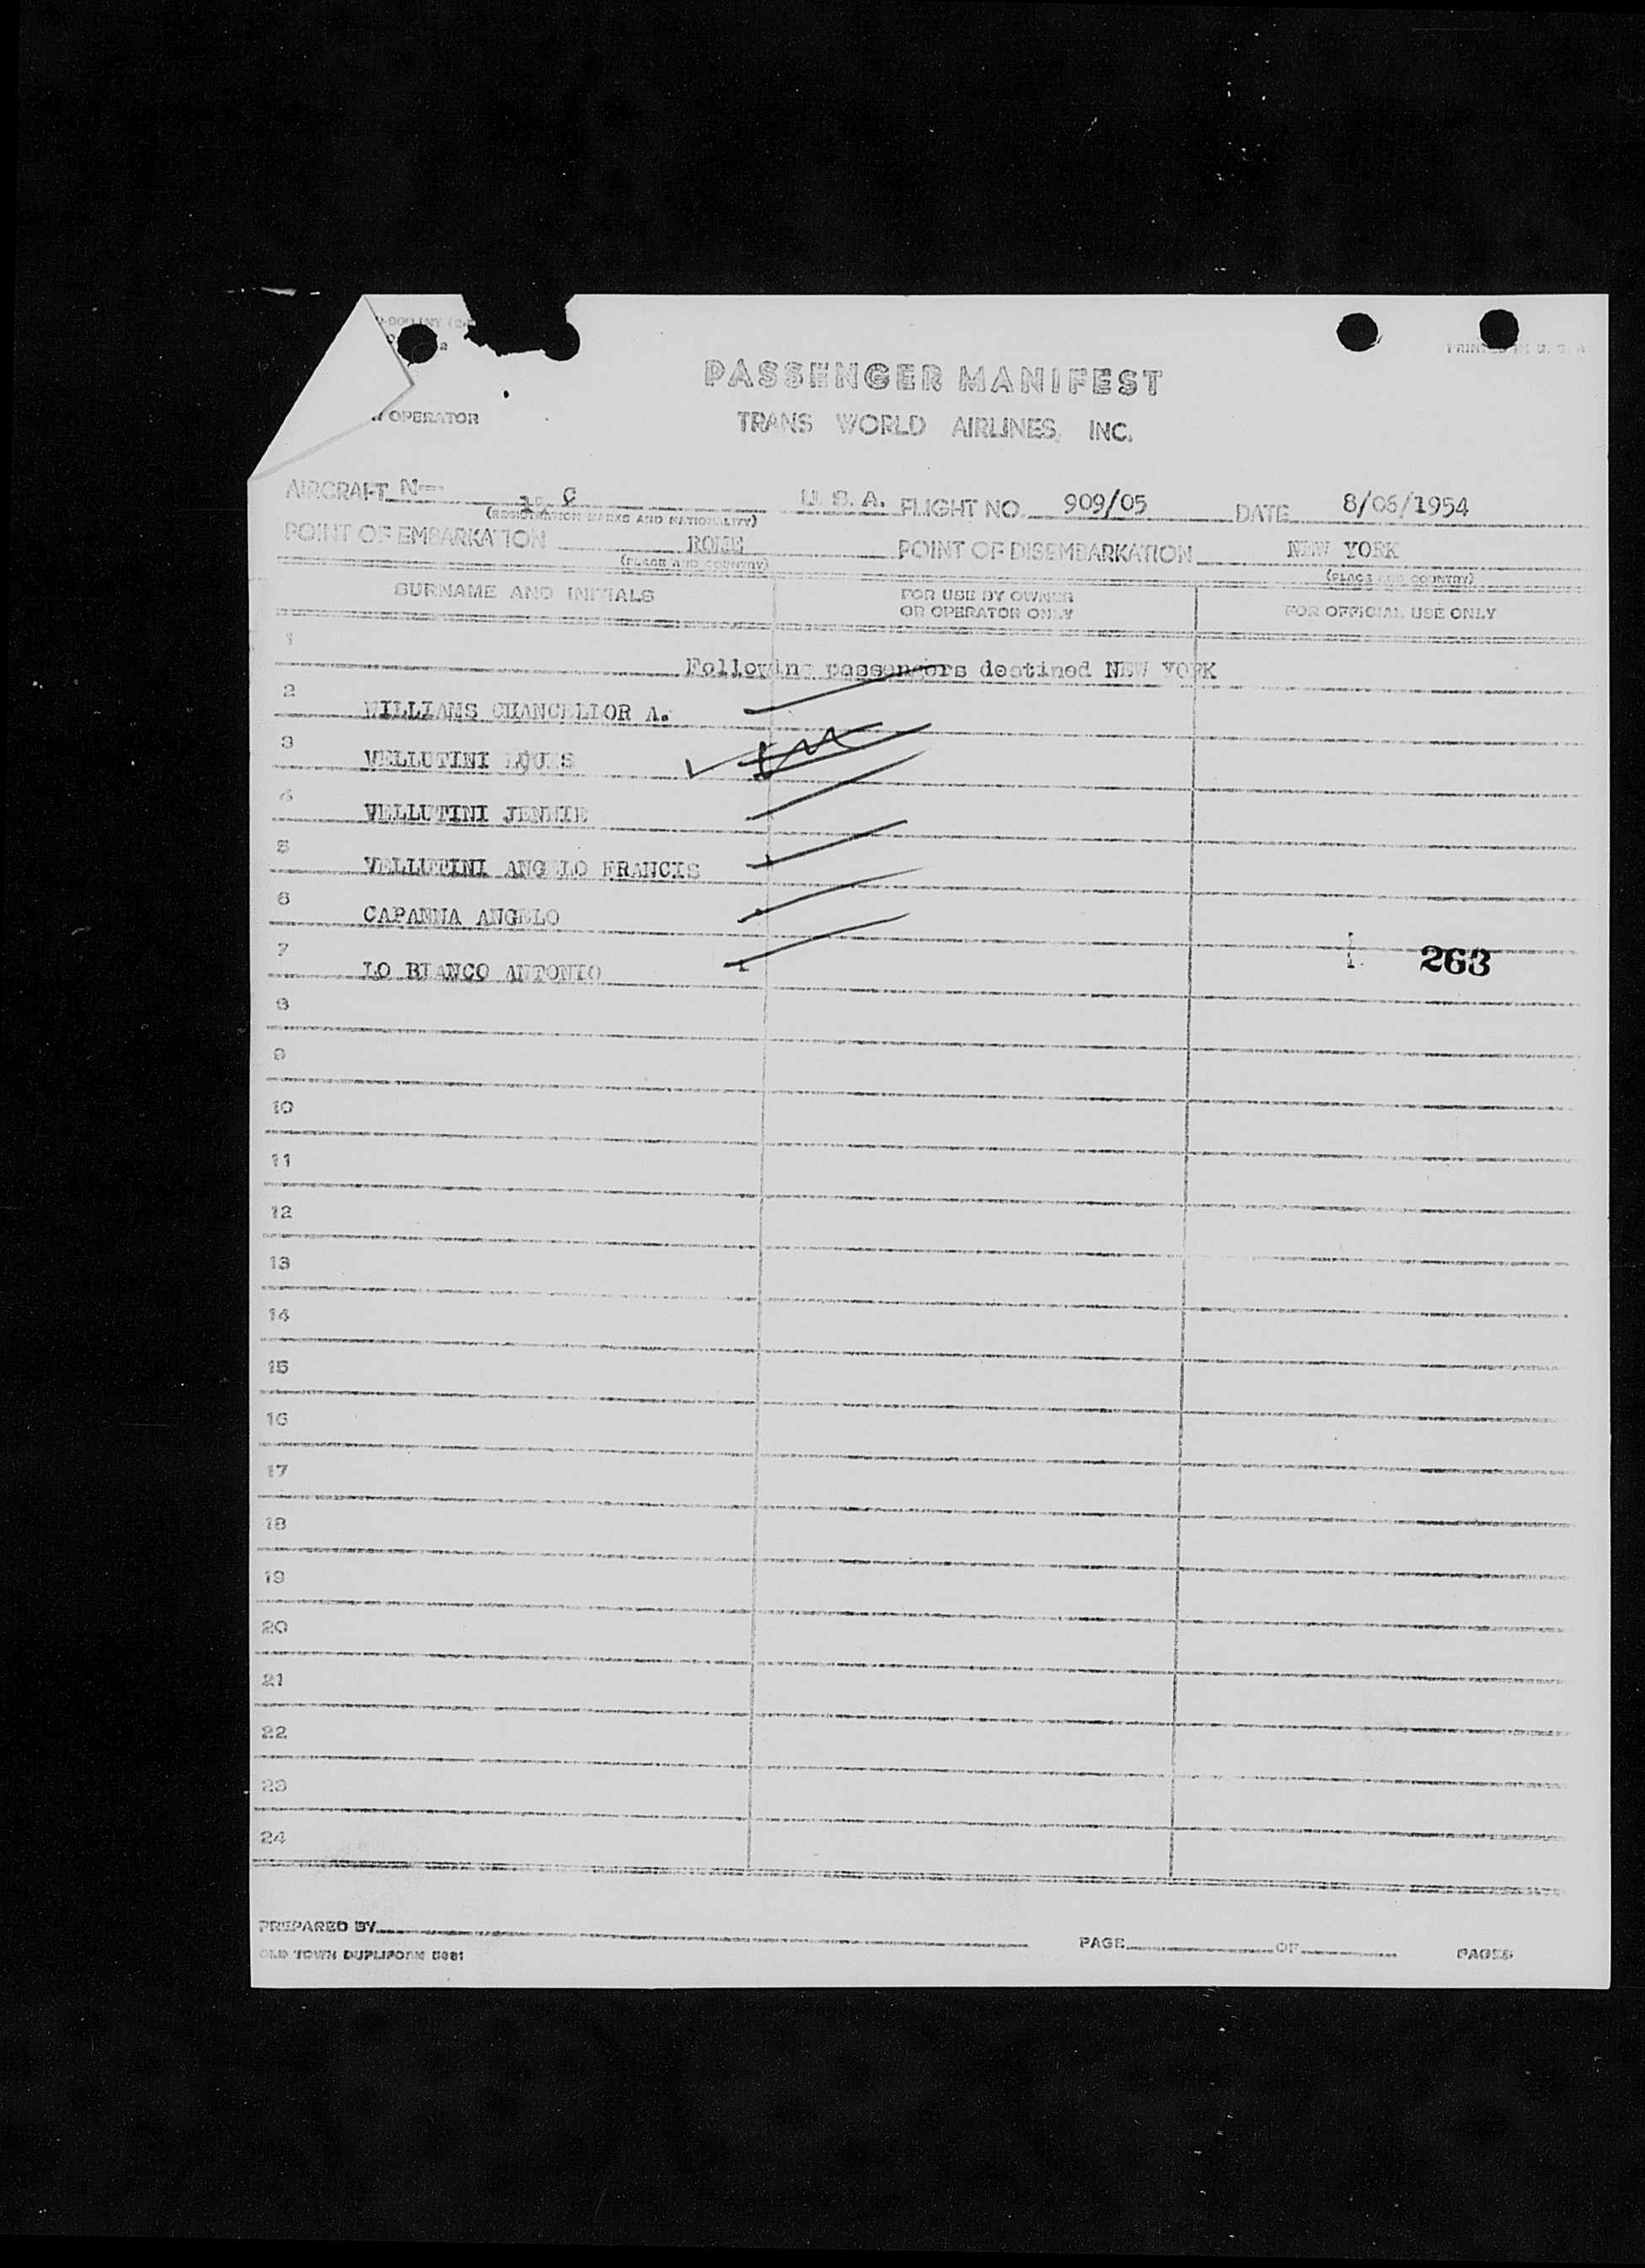 PRINTED IN U. S. A.
OPERATOR
PASSENGER MANIFEST
TRANS WORLD AIRLINES, INC.
AIRCRAFT N C U. S. A. FLIGHT NO. 909/05 DATE 8/06/1954
(REGISTRATION MARKS AND NATIONALITY)
POINT OF EMBARKATION ROME POINT OF DISEMBARKATION NEW YORK
(PLACE AND COUNTRY) (PLACE AND COUNTRY)
SURNAME AND INITIALS FOR USE BY OWNER OR OPERATOR ONLY FOR OFFICIAL USE ONLY
1
Following passengers destined NEW YORK
2 WILLIAMS CHANCELLOR A.
3 VELLUTINI LOUIS
4 VELLUTINI JENNIE
5 VELLUTINI ANGELO FRANCIS
6 CAPANNA ANGELO
7 LO BIANCO ANTONIO 263
8
9
10
11
12
13
14
15
16
17
18
19
20
21
22
23
24
PREPARED BY PAGE OF PAGES
OLD TOWN DUPLIFORM